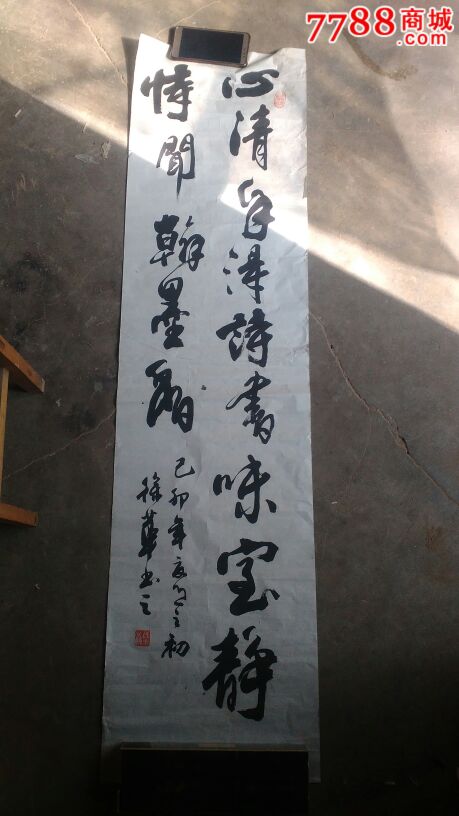 7788商城
.com
心清自得詩書味室靜
時聞翰墨香
己卯年夏月之初
徐華书之